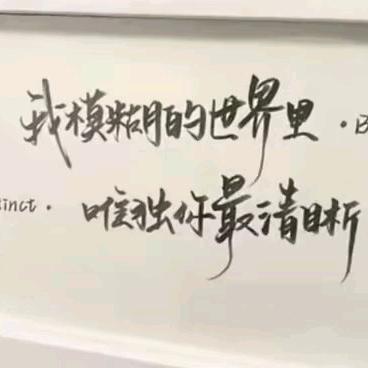 我模糊的世界里 · B
inct · 唯独你最清晰